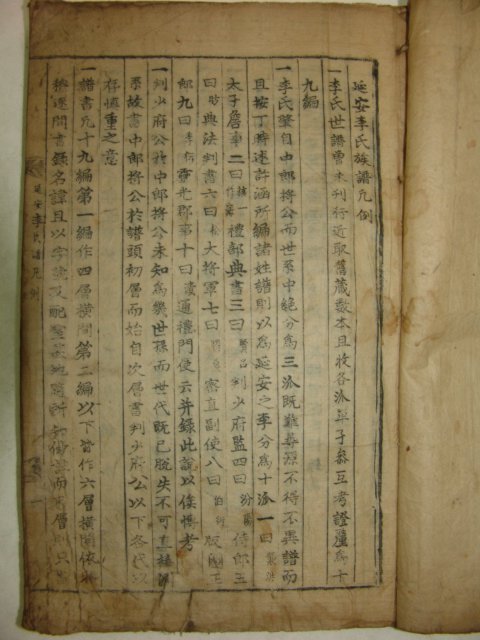 延安李氏族譜凡例
一李氏世譜曾未刊行近取舊蔵數本且收各派單子參互考證釐爲十
九編
一李氏肇自中郎將公而世系中絶分爲三派既難尋源不得不異譜而
且按丁時述許涵所編諸姓譜則以爲延安之李分爲十派一曰襲洪
太子詹事二曰禮部典書三曰賢呂判少府監四曰汾陽侍郎五
曰昉典法判書六曰松大將軍七曰審直副使八曰伯版圖正
郎九曰靈光郡事十曰凌通禮門使云并録此說以俟愽考
一判少府公於中郎將公未知爲幾世孫而世代既已脫失不可直接派
系故書中郎將公於譜頭初層而始自次層書判少府公以下各代以
存慎重之意
一譜書凡十九編第一編作四層橫間第二編以下皆作六層橫間依
述間書録名諱且以字諡及配墓地而層則
延安李氏譜凡例
一